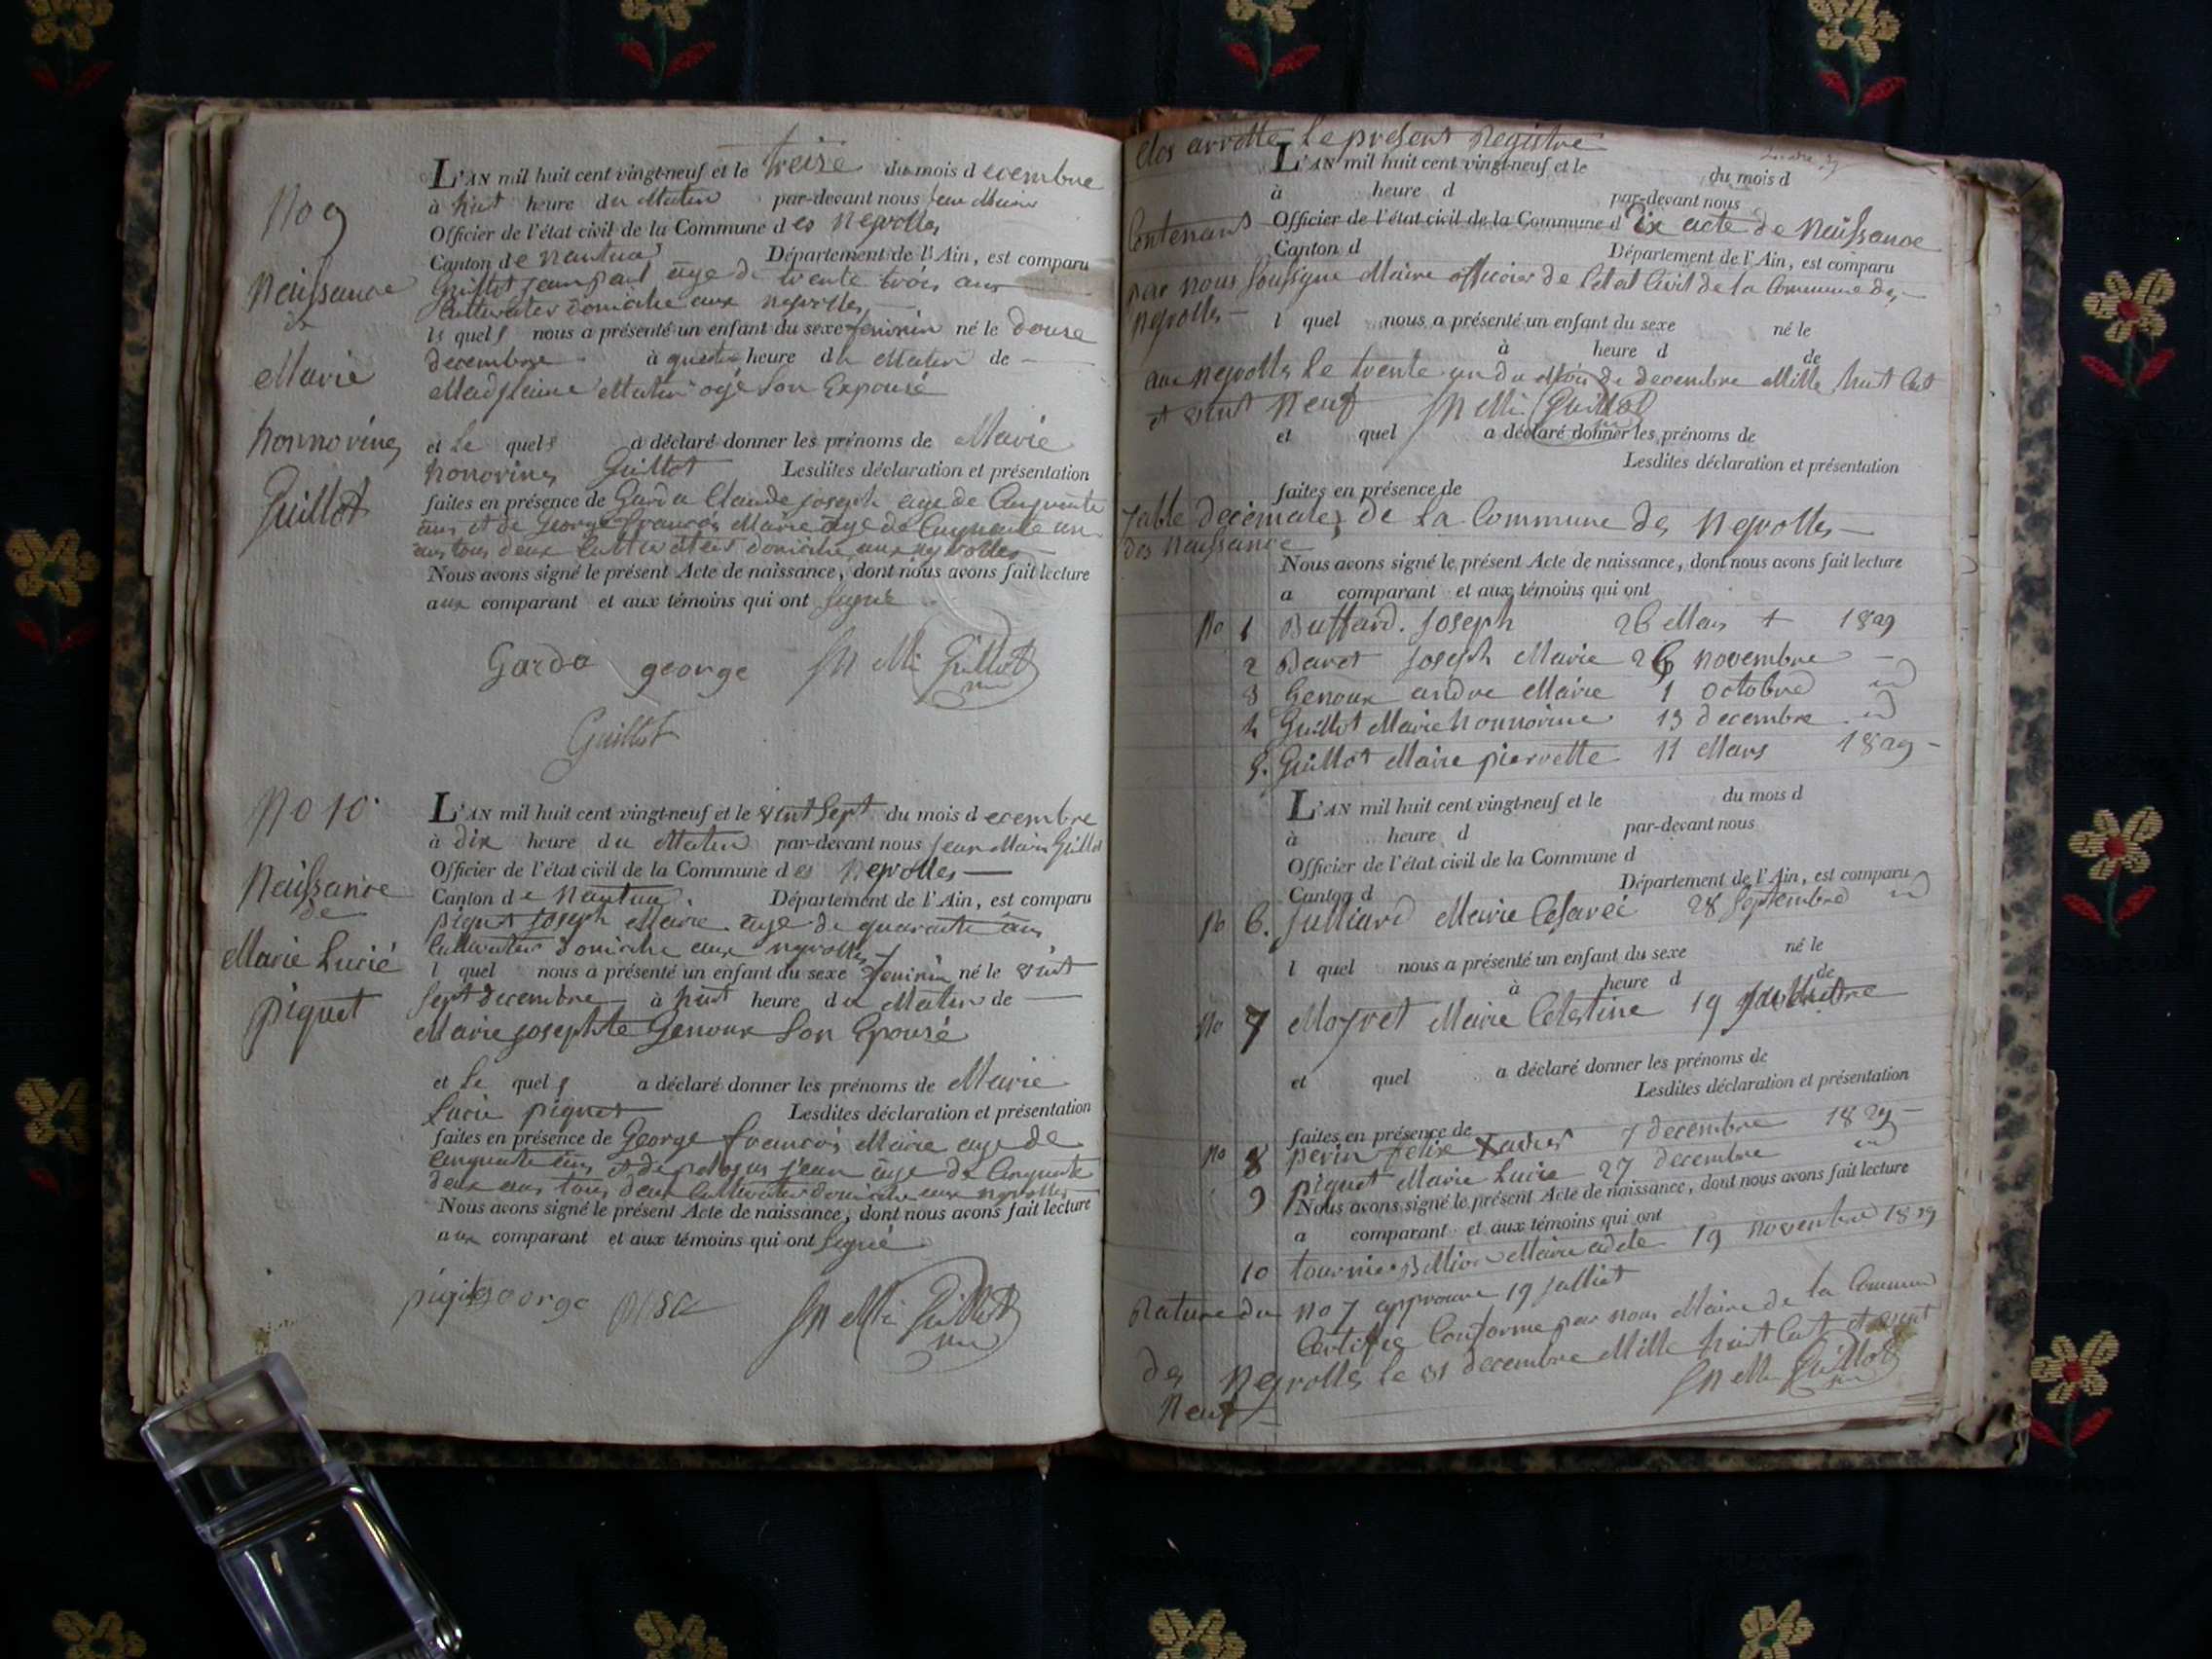 No 9
Naissance
de
Marie
honnorine
Guillot
L'AN mil huit cent vingt-neuf et le treise du mois d ecembre
à huit heure du Matin par-devant nous jean Marie
Officier de l'état civil de la Commune des Neyrolles
Canton de nantua Département de l'Ain, est comparu
Guillot jean paul âge de trente trois ans
Cultivateur domicilie aux neyrolles
le quel nous a présenté un enfant du sexe feminin né le douse
decembre à quatre heure du Matin de
Madelaine Mathieu son Epousé
et Le quel a déclaré donner les prénoms de Marie
honorine Guillot Lesdites déclaration et présentation
faites en présence de Garda Claude joseph age de Cinquante
ans et de George françois Marie age de Cinquante un
ans tous deux Cultivateurs domicilie aux neyrolles
Nous avons signé le présent Acte de naissance, dont nous avons fait lecture
aux comparant et aux témoins qui ont signé
Garda george Jn Mie Guillot
Guillot
No 10
Naissance
de
Marie Lucié
piquet
L'AN mil huit cent vingt-neuf et le vint sept du mois d ecembre
à dix heure du Matin par-devant nous jean Marie Guillot
Officier de l'état civil de la Commune des Neyrolles
Canton de Nantua Département de l'Ain, est comparu
piquet joseph Marie age de quarante ans
Cultivateur domicilie aux neyrolles
l quel nous a présenté un enfant du sexe feminin né le vint
sept decembre à huit heure du Matin de
Marie josephte Genoux son Epousé
et Le quel a déclaré donner les prénoms de Marie
Lucie piquet Lesdites déclaration et présentation
faites en présence de George françois Marie age de
cinquante ans et de jean âge de Cinquante
deux ans tous deux Cultivateur domicilie aux neyrolles
Nous avons signé le présent Acte de naissance, dont nous avons fait lecture
aux comparant et aux témoins qui ont signé
george Jn Mie Guillot
Clos arrotte Le present Registre
L'AN mil huit cent vingt-neuf et le du mois d
à heure d par-devant nous
Contenant Officier de l'état civil de la Commune d Dix acte de Naissance
Canton d Département de l'Ain, est comparu
par nous soussigne Maire officier de l'etat Civil de la Commune des
Neyrolles l quel nous a présenté un enfant du sexe né le
à heure d de
aux Neyrolles Le trente un du Mois de decembre Mille huit Cent
et vint Neuf Jn Mie Guillot
et quel a déclaré donner les prénoms de
Lesdites déclaration et présentation
faites en présence de
Table decemale de La Commune des Neyrolles
des Naissance
Nous avons signé le présent Acte de naissance, dont nous avons fait lecture
a comparant et aux témoins qui ont
No 1 Buffard. Joseph 26 Mars + 1829
2 Baret Joseph Marie 26 novembre
3 Genoux andre Marie 1 octobre id
4 Guillot Marie honnorine 13 decembre id
5. Guillot Marie pierrette 11 Mars 1829
L'AN mil huit cent vingt-neuf et le du mois d
à heure d par-devant nous
Officier de l'état civil de la Commune d
Canton d Département de l'Ain, est comparu
No 6. Julliard Marie Cesareé 28 Septembre id
l quel nous a présenté un enfant du sexe né le
à heure d de
No 7 Moyret Marie Celestine 19
et quel a déclaré donner les prénoms de
Lesdites déclaration et présentation
faites en présence de
No 8 perin felix Xavier 7 decembre 1829
9 piquet Marie Lucie 27 decembre id
Nous avons signé le présent Acte de naissance, dont nous avons fait lecture
a comparant et aux témoins qui ont
10 tournier Marie adele 19 novembre 1829
Rature du No 7 approuve 19 Julliet
Certifie Conforme par nous Maire de la Commune
des Neyrolles Le 31 decembre Mille huit Cent et vint
Neuf Jn Mie Guillot